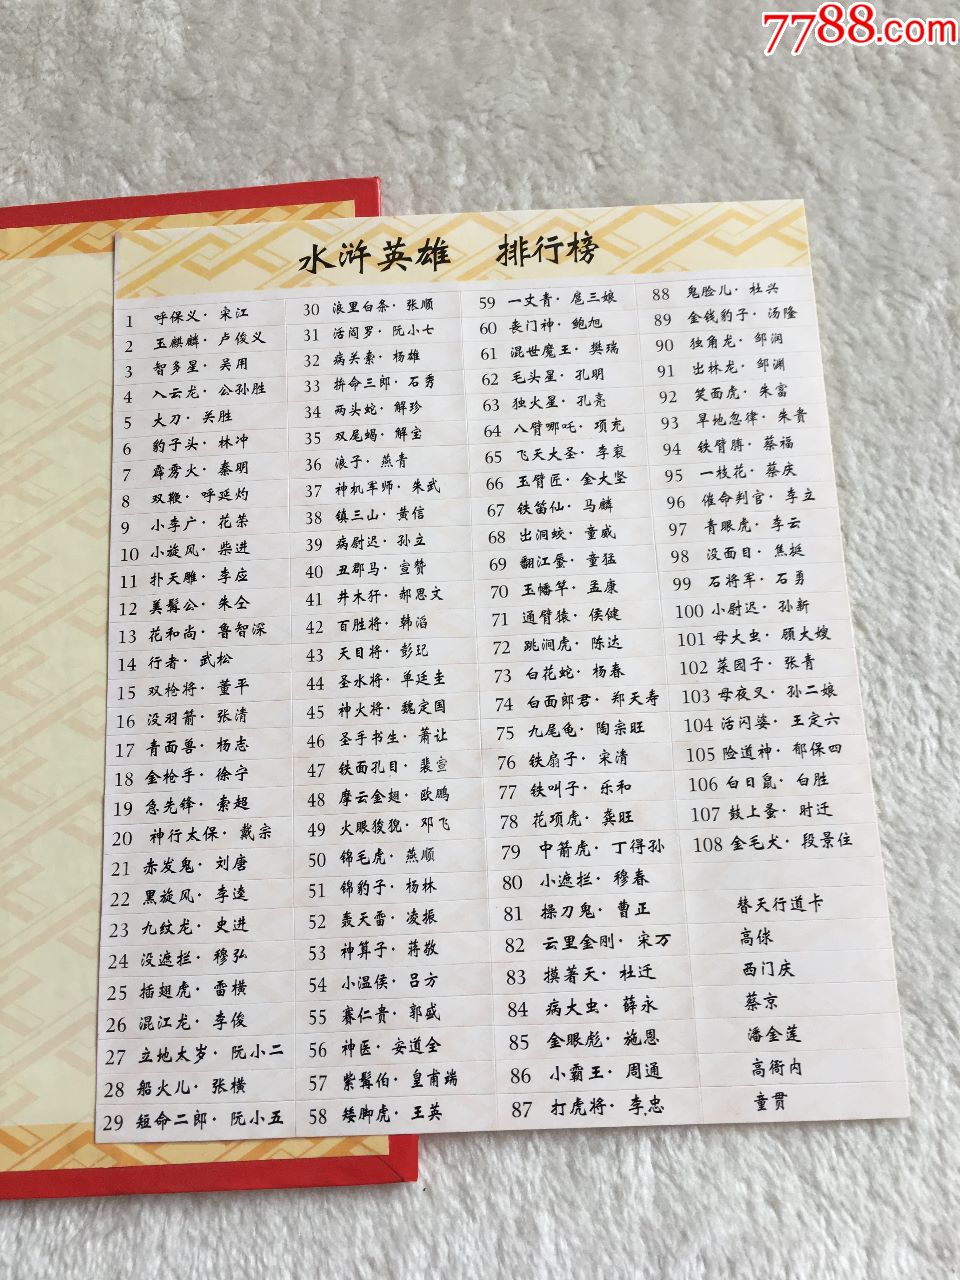 7788.com
水浒英雄 排行榜
1 呼保义·宋江
2 玉麒麟·卢俊义
3 智多星·吴用
4 入云龙·公孙胜
5 大刀·关胜
6 豹子头·林冲
7 霹雳火·秦明
8 双鞭·呼延灼
9 小李广·花荣
10 小旋风·柴进
11 扑天雕·李应
12 美髯公·朱仝
13 花和尚·鲁智深
14 行者·武松
15 双枪将·董平
16 没羽箭·张清
17 青面兽·杨志
18 金枪手·徐宁
19 急先锋·索超
20 神行太保·戴宗
21 赤发鬼·刘唐
22 黑旋风·李逵
23 九纹龙·史进
24 没遮拦·穆弘
25 插翅虎·雷横
26 混江龙·李俊
27 立地太岁·阮小二
28 船火儿·张横
29 短命二郎·阮小五
30 浪里白条·张顺
31 活阎罗·阮小七
32 病关索·杨雄
33 拚命三郎·石秀
34 两头蛇·解珍
35 双尾蝎·解宝
36 浪子·燕青
37 神机军师·朱武
38 镇三山·黄信
39 病尉迟·孙立
40 丑郡马·宣赞
41 井木犴·郝思文
42 百胜将·韩滔
43 天目将·彭玘
44 圣水将·单廷圭
45 神火将·魏定国
46 圣手书生·萧让
47 铁面孔目·裴宣
48 摩云金翅·欧鹏
49 火眼狻猊·邓飞
50 锦毛虎·燕顺
51 锦豹子·杨林
52 轰天雷·凌振
53 神算子·蒋敬
54 小温侯·吕方
55 赛仁贵·郭盛
56 神医·安道全
57 紫髯伯·皇甫端
58 矮脚虎·王英
59 一丈青·扈三娘
60 丧门神·鲍旭
61 混世魔王·樊瑞
62 毛头星·孔明
63 独火星·孔亮
64 八臂哪吒·项充
65 飞天大圣·李衮
66 玉臂匠·金大坚
67 铁笛仙·马麟
68 出洞蛟·童威
69 翻江蜃·童猛
70 玉幡竿·孟康
71 通臂猿·侯健
72 跳涧虎·陈达
73 白花蛇·杨春
74 白面郎君·郑天寿
75 九尾龟·陶宗旺
76 铁扇子·宋清
77 铁叫子·乐和
78 花项虎·龚旺
79 中箭虎·丁得孙
80 小遮拦·穆春
81 操刀鬼·曹正
82 云里金刚·宋万
83 摸著天·杜迁
84 病大虫·薛永
85 金眼彪·施恩
86 小霸王·周通
87 打虎将·李忠
88 鬼脸儿·杜兴
89 金钱豹子·汤隆
90 独角龙·邹润
91 出林龙·邹渊
92 笑面虎·朱富
93 旱地忽律·朱贵
94 铁臂膊·蔡福
95 一枝花·蔡庆
96 催命判官·李立
97 青眼虎·李云
98 没面目·焦挺
99 石将军·石勇
100 小尉迟·孙新
101 母大虫·顾大嫂
102 菜园子·张青
103 母夜叉·孙二娘
104 活闪婆·王定六
105 险道神·郁保四
106 白日鼠·白胜
107 鼓上蚤·时迁
108 金毛犬·段景住
替天行道卡
高俅
西门庆
蔡京
潘金莲
高衙内
童贯